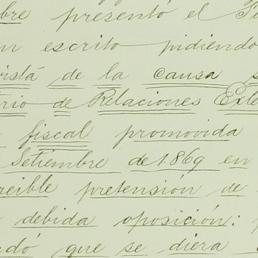 bre presentó el
n escrito pidiendo
vista de la causa
rio de Relaciones Exte
fiscal promovida
Setiembre de 1869 en
creible pretensión de
debida oposición:
dó que se diera